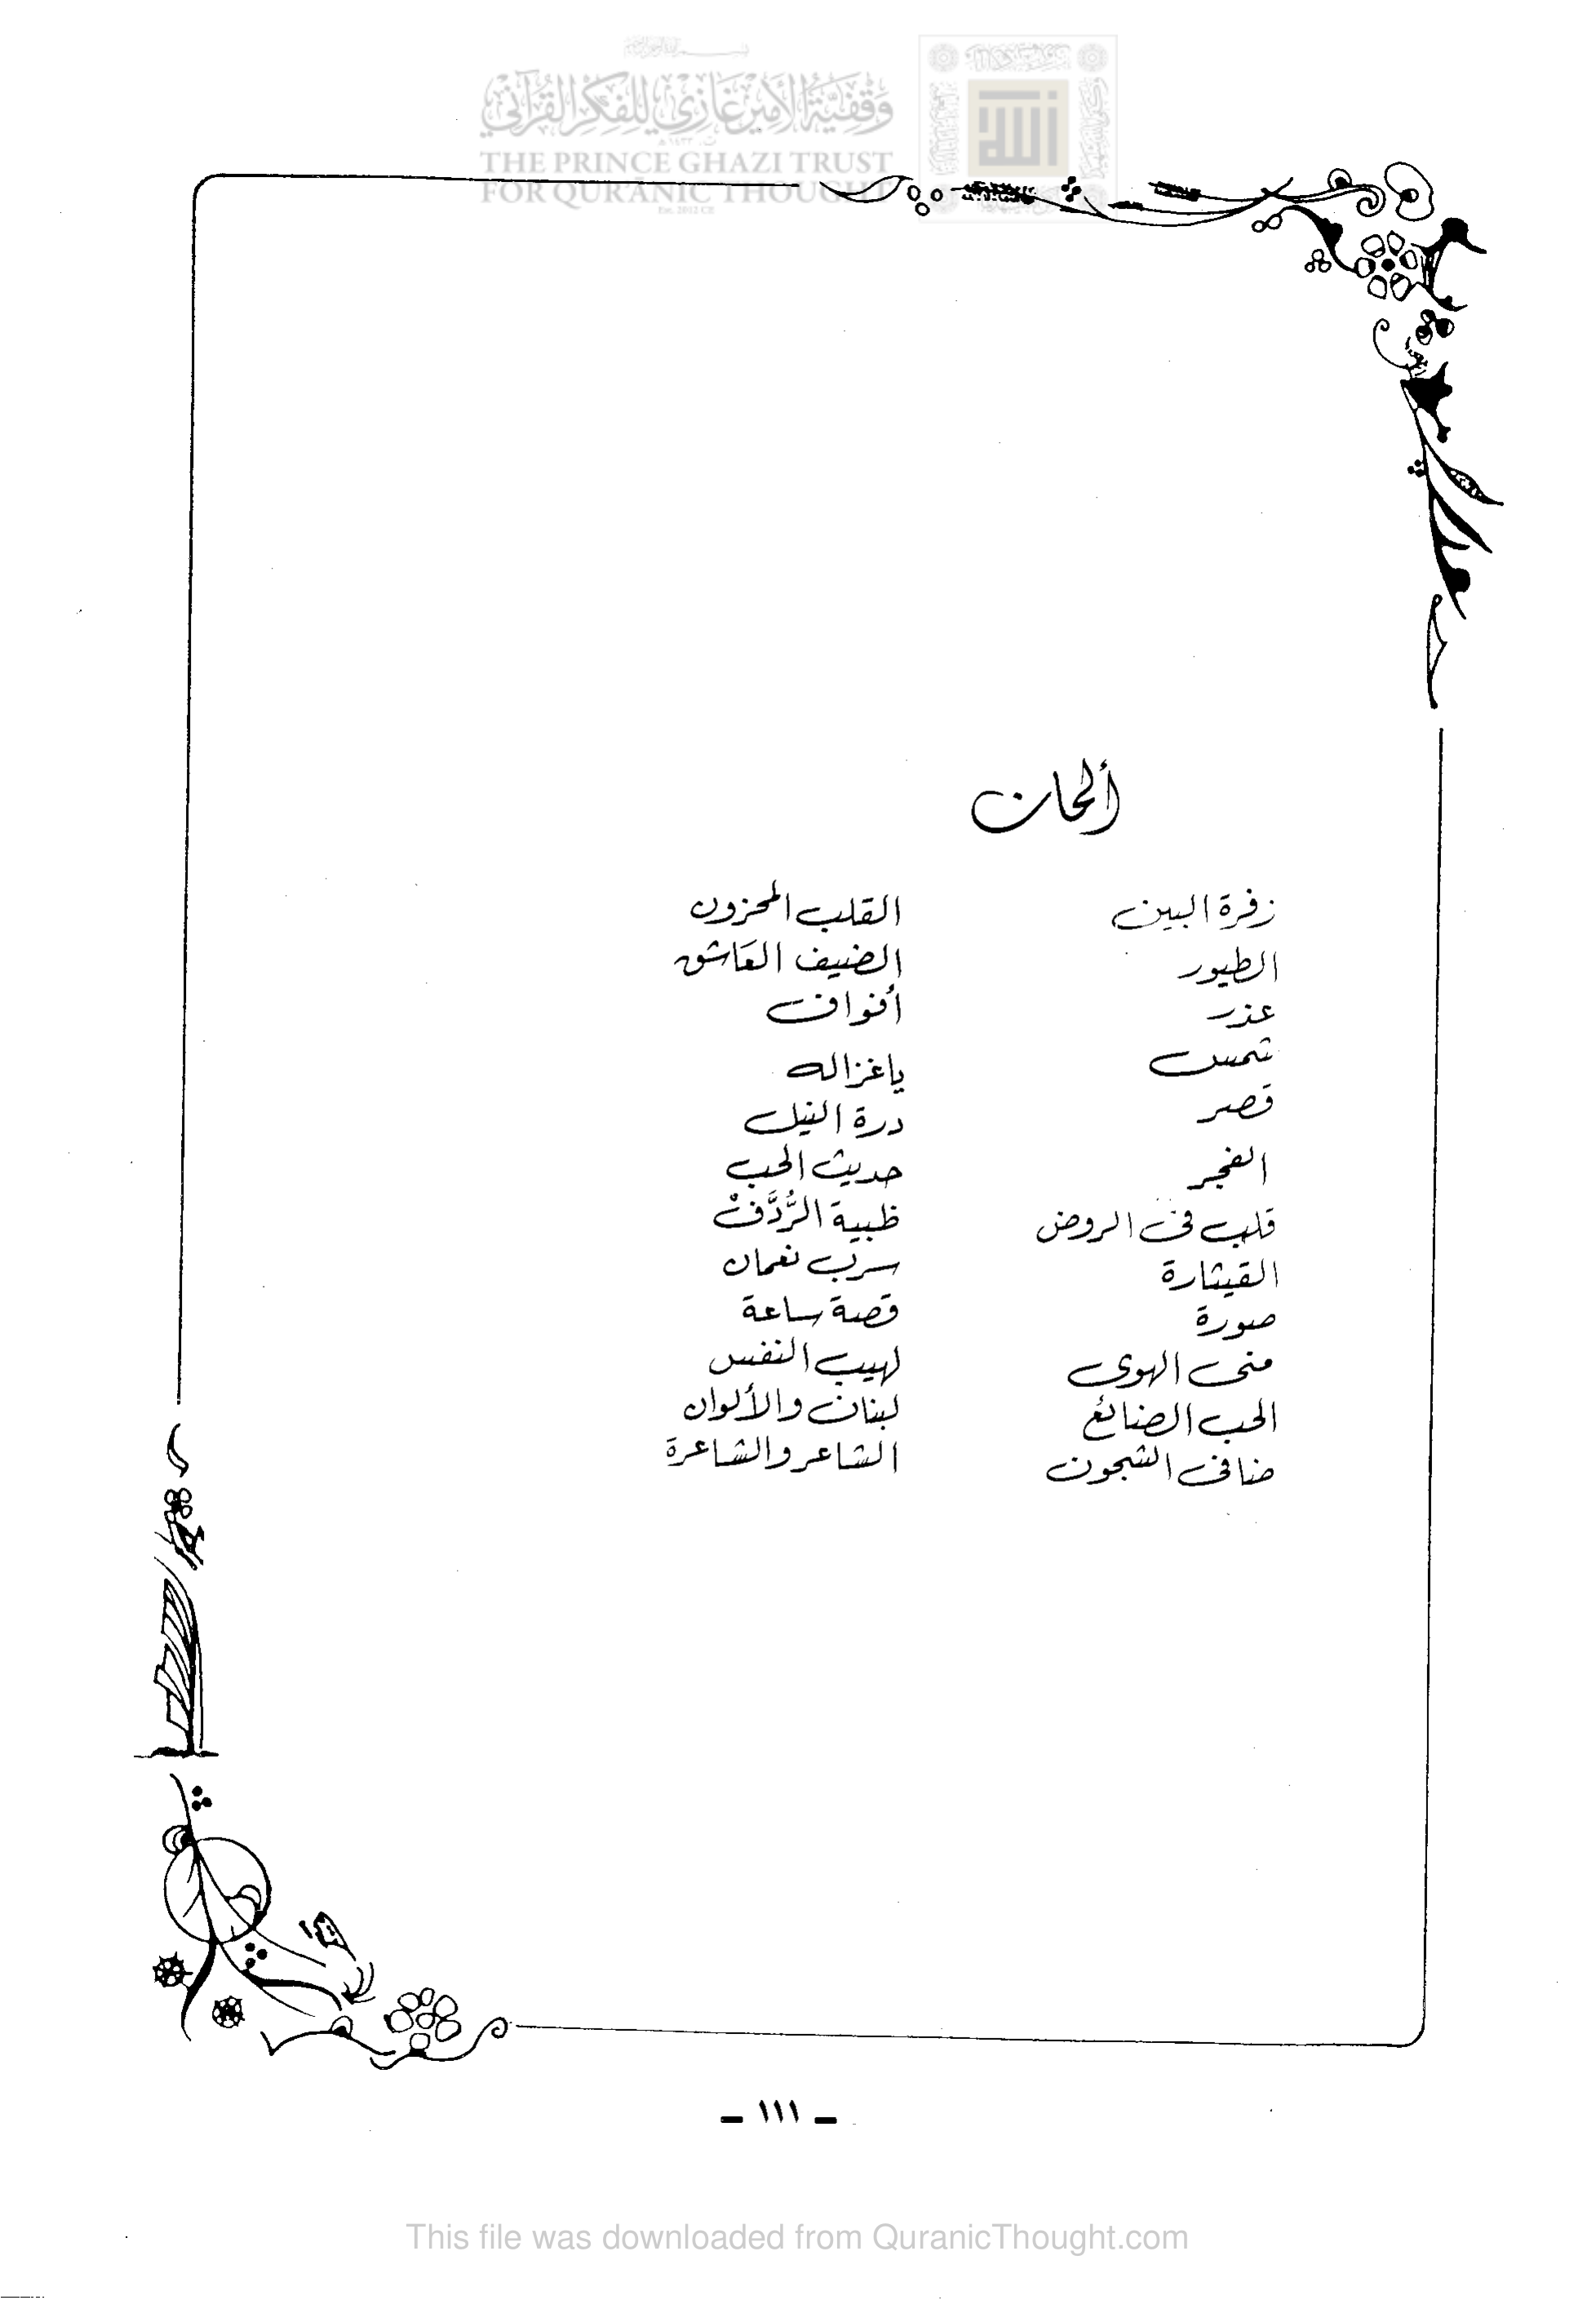 وَقْفِيَّةُ الأَمِيرِ غَازِي لِلْفِكْرِ الْقُرْآنِي
THE PRINCE GHAZI TRUST
FOR QUR'ĀNIC THOUGHT
Est. 2012 CE
ألحان
زفرة البين
الطيور
عذر
شمس
قصر
الفجر
قلب في الروض
القيثارة
صورة
منى الهوى
الحب الضائع
ضافي الشجون
القلب المحزون
الضيف العاشق
أفواف
ياغزاله
درة النيل
حديث الحب
ظبية الرُّدَّفْ
سرب نعمان
قصة ساعة
لهيب النفس
لبنان والألوان
الشاعر والشاعرة
ـ ١١١ ـ
This file was downloaded from QuranicThought.com